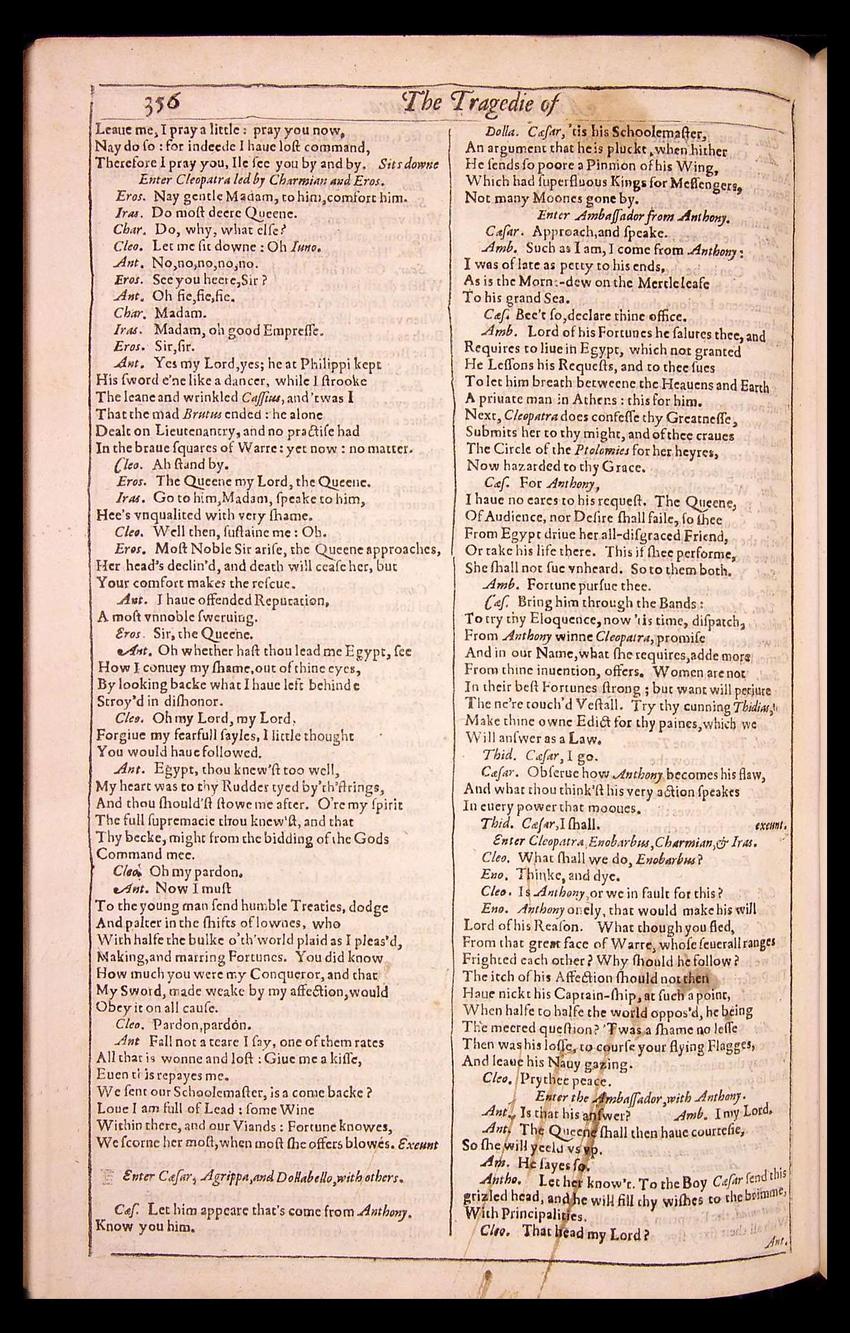 356
The Tragedie of
Leaue me, I pray a little: pray you now,
Nay do so: for indeede I haue lost command,
Therefore I pray you, Ile see you by and by. Sits downe
Enter Cleopatra led by Charmian and Eros.
Eros. Nay gentle Madam, to him, comfort him.
Iras. Do most deere Queene.
Char. Do, why, what else?
Cleo. Let me sit downe: Oh Iuno.
Ant. No, no, no, no, no.
Eros. See you heere, Sir?
Ant. Oh fie, fie, fie.
Char. Madam.
Iras. Madam, oh good Empresse.
Eros. Sir, sir.
Ant. Yes my Lord, yes; he at Philippi kept
His sword e'ne like a dancer, while I strooke
The leane and wrinkled Cassius, and 'twas I
That the mad Brutus ended: he alone
Dealt on Lieutenantry, and no practise had
In the braue squares of Warre: yet now: no matter.
Cleo. Ah stand by.
Eros. The Queene my Lord, the Queene.
Iras. Go to him, Madam, speake to him,
Hee's vnqualited with very shame.
Cleo. Well then, sustaine me: Oh.
Eros. Most Noble Sir arise, the Queene approaches,
Her head's declin'd, and death will cease her, but
Your comfort makes the rescue.
Ant. I haue offended Reputation,
A most vnnoble sweruing.
Eros. Sir, the Queene.
Ant. Oh whether hast thou lead me Egypt, see
How I conuey my shame, out of thine eyes,
By looking backe what I haue left behinde
Stroy'd in dishonor.
Cleo. Oh my Lord, my Lord,
Forgiue my fearfull sayles, I little thought
You would haue followed.
Ant. Egypt, thou knew'st too well,
My heart was to thy Rudder tyed by'th'strings,
And thou should'st stowe me after. O're my spirit
The full supremacie thou knew'st, and that
Thy becke, might from the bidding of the Gods
Command mee.
Cleo. Oh my pardon.
Ant. Now I must
To the young man send humble Treaties, dodge
And palter in the shifts of lownes, who
With halfe the bulke o'th'world plaid as I pleas'd,
Making, and marring Fortunes. You did know
How much you were my Conqueror, and that
My Sword, made weake by my affection, would
Obey it on all cause.
Cleo. Pardon, pardon.
Ant Fall not a teare I say, one of them rates
All that is wonne and lost: Giue me a kisse,
Euen this repayes me.
We sent our Schoolemaster, is a come backe?
Loue I am full of Lead: some Wine
Within there, and our Viands: Fortune knowes,
We scorne her most, when most she offers blowes. Exeunt
Enter Cæsar, Agrippa, and Dollabello, with others.
Cæs. Let him appeare that's come from Anthony.
Know you him.
Dolla. Cæsar, 'tis his Schoolemaster,
An argument that he is pluckt, when hither
He sends so poore a Pinnion of his Wing,
Which had superfluous Kings for Messengers,
Not many Moones gone by.
Enter Ambassador from Anthony.
Cæsar. Approach, and speake.
Amb. Such as I am, I come from Anthony:
I was of late as petty to his ends,
As is the Morn-dew on the Mertle leafe
To his grand Sea.
Cæs. Bee't so, declare thine office.
Amb. Lord of his Fortunes he salutes thee, and
Requires to liue in Egypt, which not granted
He Lessons his Requests, and to thee sues
To let him breath betweene the Heauens and Earth
A priuate man in Athens: this for him.
Next, Cleopatra does confesse thy Greatnesse,
Submits her to thy might, and of thee craues
The Circle of the Ptolomies for her heyres,
Now hazarded to thy Grace.
Cæs. For Anthony,
I haue no eares to his request. The Queene,
Of Audience, nor Desire shall faile, so shee
From Egypt driue her all-disgraced Friend,
Or take his life there. This if shee performe,
She shall not sue vnheard. So to them both.
Amb. Fortune pursue thee.
Cæs. Bring him through the Bands:
To try thy Eloquence, now 'tis time, dispatch,
From Anthony winne Cleopatra, promise
And in our Name, what she requires, adde more
From thine inuention, offers. Women are not
In their best Fortunes strong; but want will periure
The ne're touch'd Vestall. Try thy cunning Thidias,
Make thine owne Edict for thy paines, which we
Will answer as a Law.
Thid. Cæsar, I go.
Cæsar. Obserue how Anthony becomes his flaw,
And what thou think'st his very action speakes
In euery power that mooues.
Thid. Cæsar, I shall. exeunt.
Enter Cleopatra, Enobarbus, Charmian, & Iras.
Cleo. What shall we do, Enobarbus?
Eno. Thinke, and dye.
Cleo. Is Anthony, or we in fault for this?
Eno. Anthony onely, that would make his will
Lord of his Reason. What though you fled,
From that great face of Warre, whose seuerall ranges
Frighted each other? Why should he follow?
The itch of his Affection should not then
Haue nickt his Captain-ship, at such a point,
When halfe to halfe the world oppos'd, he being
The meered question? 'Twas a shame no lesse
Then was his losse, to course your flying Flagges,
And leaue his Nauy gazing.
Cleo. Prythee peace.
Enter the Ambassador, with Anthony.
Ant. Is that his answer? Amb. I my Lord.
Ant. The Queene shall then haue courtesie,
So she will yeeld vs vp.
Am. He sayes so.
Antho. Let her know't. To the Boy Cæsar send this
grizled head, and he will fill thy wishes to the brimme,
With Principalities.
Cleo. That head my Lord?
Ant.